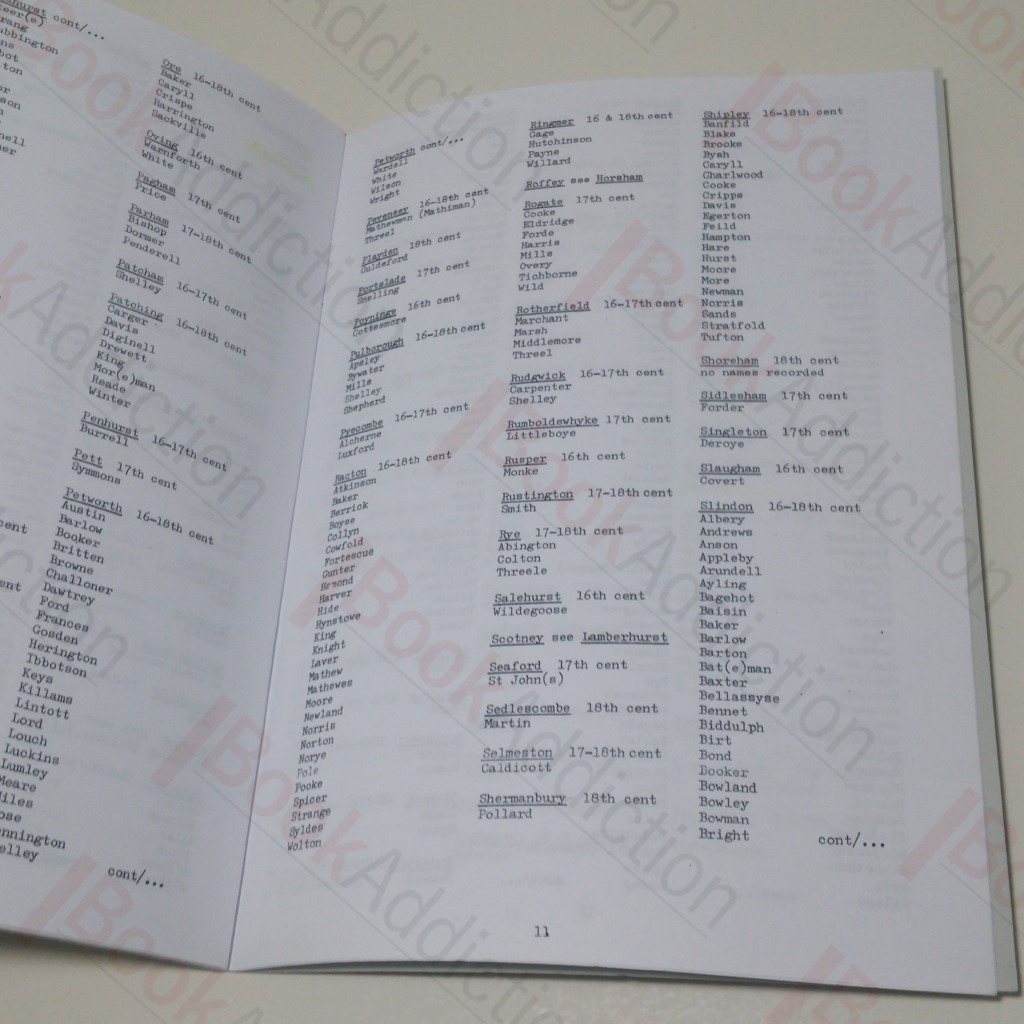 cont/...
Ore 16-18th cent
Baker
Caryll
Crispe
Harrington
Sackville
Oving 16th cent
Warnforth
White
Pagham 17th cent
Price
Parham 17-18th cent
Bishop
Dormer
Penderell
Patcham 16-17th cent
Shelley
Patching 16-18th cent
Carger
Davis
Diginell
Drewett
King
Mor(e)man
Reade
Winter
Penhurst 16-17th cent
Burrell
Pett 17th cent
Symmons
Petworth 16-18th cent
Austin
Barlow
Booker
Britten
Browne
Challoner
Dawtrey
Ford
Frances
Gosden
Herington
Ibbotson
Keys
Killams
Lintott
Lord
Louch
Luckins
Lumley
Meare
cont/...
Petworth cont/...
Wardell
White
Wilson
Wright
Pevensey 16-18th cent
Mathewman (Mathiman)
Threel
Playden 18th cent
Guldeford
Portslade 17th cent
Snelling
Poynings 16th cent
Cottesmore
Pulborough 16-18th cent
Apsley
Bywater
Mills
Shelley
Shepherd
Pyecombe 16-17th cent
Alcherne
Luxford
Racton 16-18th cent
Atkinson
Baker
Berrick
Boyse
Collyn
Cowfold
Fortescue
Gunter
Harver
Hide
Hynstowe
King
Knight
Laver
Mathew
Mathewes
Moore
Newland
Norris
Norton
Norye
Pole
Pooke
Spicer
Strange
Syldes
Wolton
Ringmer 16 & 18th cent
Gage
Hutchinson
Payne
Willard
Roffey see Horsham
Rogate 17th cent
Cooke
Eldridge
Forde
Harris
Mills
Overy
Tichborne
Wild
Rotherfield 16-17th cent
Marchant
Marsh
Middlemore
Threel
Rudgwick 16-17th cent
Carpenter
Shelley
Rumboldswhyke 17th cent
Littleboye
Rusper 16th cent
Monke
Rustington 17-18th cent
Smith
Rye 17-18th cent
Abington
Colton
Threele
Salehurst 16th cent
Wildegoose
Scotney see Lamberhurst
Seaford 17th cent
St John(s)
Sedlescombe 18th cent
Martin
Selmeston 17-18th cent
Caldicott
Shermanbury 18th cent
Pollard
Shipley 16-18th cent
Banfild
Blake
Brooke
Bysh
Caryll
Charlwood
Cooke
Cripps
Davis
Egerton
Feild
Hampton
Hare
Hurst
Moore
More
Newman
Norris
Sands
Stratfold
Tufton
Shoreham 18th cent
no names recorded
Sidlesham 17th cent
Forder
Singleton 17th cent
Deroye
Slaugham 16th cent
Covert
Slindon 16-18th cent
Albery
Andrews
Anson
Appleby
Arundell
Ayling
Bagehot
Baisin
Baker
Barlow
Barton
Bat(e)man
Baxter
Bellassyse
Bennet
Biddulph
Birt
Bond
Booker
Bowland
Bowley
Bowman
Bright
cont/...
11
BookAddiction